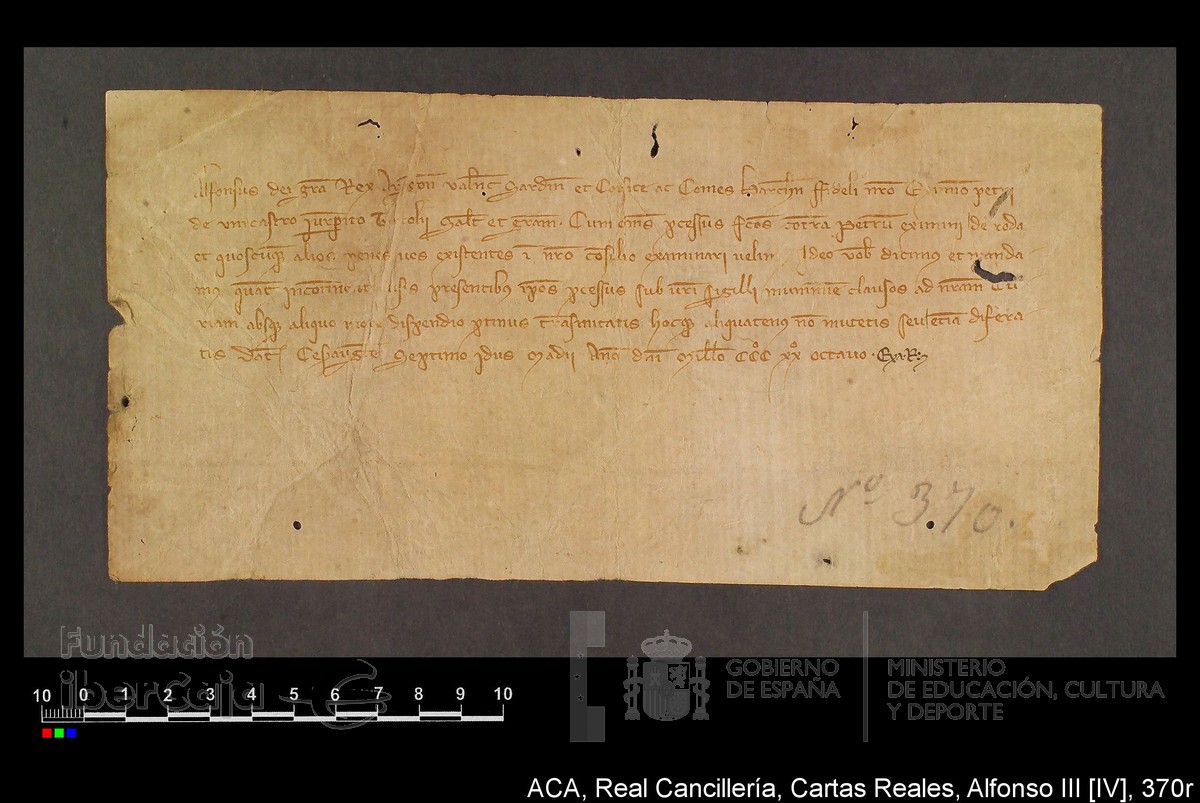 Alfonsus dei gr̃a Rex Aragon̄ Valenc̄ Sardin̄ et Corsice ac Comes Barch̄n ffideli nr̃o Eximino petri
de vnicastro jurꝑito Cum om̃s ꝓcessus fc̃os cont̃ra Petrum eximini de roda
et quoscumq̃ alios penes vos existentes ĩ nr̃o cõsilio examinari velim̃ Ideo vob̃ dicimus et manda
mus quat̃ incontinenti visis presentibus ip̃os ꝓcessus sub vr̃i sigilli munimĩe clausos ad nr̃am Cu
riam absq̃ aliquo more dispendio ꝓtinus trãsmitatis hocq̃ aliquatenus nõ mutetis seu etiã differa
tis Dat̃ Cesaraugᵉ Septimo idus Madii Anno dñi Mill̃o CCCº xxº octauo. Ex. R.
Nº 370.
Fundación
iberCaja
10 0 1 2 3 4 5 6 7 8 9 10
GOBIERNO
DE ESPAÑA
MINISTERIO
DE EDUCACIÓN, CULTURA
Y DEPORTE
ACA, Real Cancillería, Cartas Reales, Alfonso III [IV], 370r